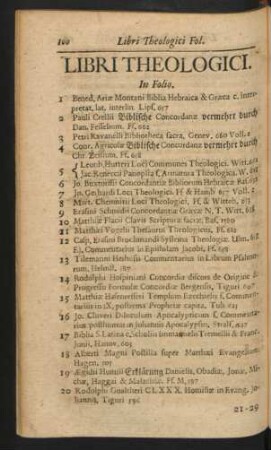 100 Libri Theologici Fol.
LIBRI THEOLOGICI.
In Folio.
1 Bened. Ariæ Montani Biblia Hebraica & Græca c. inter-
pretat. lat. interlin. Lips. 657
2 Pauli Crellii Biblische Concordanz vermehrt durch
Dan. Fesselium. Ff.
3 Petri Ravanelli Bibliotheca sacra, Genev. 660 Voll. 2
4 Conr. Agricolæ Biblische Concordanz vermehrt durch
Chr. Zeisium, Ff.
5 Leonh. Hutteri Loci Communes Theologici. Witt.
Jac. Reneccii Panoplia f. Armatura Theologica. W.
6 Jo. Buxtorfii Concordantiæ Bibliorum Hebraicæ Bas.
7 Jo. Gerhardi Loci Theologici Ff & Hamb 657 Voll.
8 Mart. Chemnitii Loci Theologici, Ff. & Witteb.
9 Erasmi Schmidii Concordantiæ Græcæ N. T. Witt.
10 Matthiæ Flacii Clavis Scripturæ sacræ, Bas.
11 Matthæi Vogelii Thesaurus Theologicus, Ff.
12 Casp. Erasmi Brochmandi Systema Theologiæ Ulm.
E). Commentarius in Epistolam Jacobi, Ff.
13 Tilemanni Heshusii Commentarius in Librum Psalmo-
rum, Helmst.
14 Rodolphi Hospiniani Concordia discors de Origine &
Progressu Formulæ Concordiæ Bergensis, Tiguri
15 Matthiæ Hafenrefferi Templum Ezechielis f. Commen-
tarius in IX. postrema Prophetæ capita, Tub
16 Jo. Cluveri Diluculum Apocalypticum f. Commenta-
rius posthumus in Johannis Apocalypsin, Stralf.
17 Biblia S. Latina c. Scholiis Immanuelis Tremellii & Franc.
Junii, Hanov.
18 Alberti Magni Postilla super Matthæi Evangelium
Hagen.
19 Ægidii Hunnii Erklärung Danielis, Obadiæ, Jonæ, Mi-
chæ, Haggai & Malachiæ. Ff. M,
20 Rodolphi Gualtheri CLXXX Homiliæ in Evang. Jo-
hannis, Tiguri
21-29